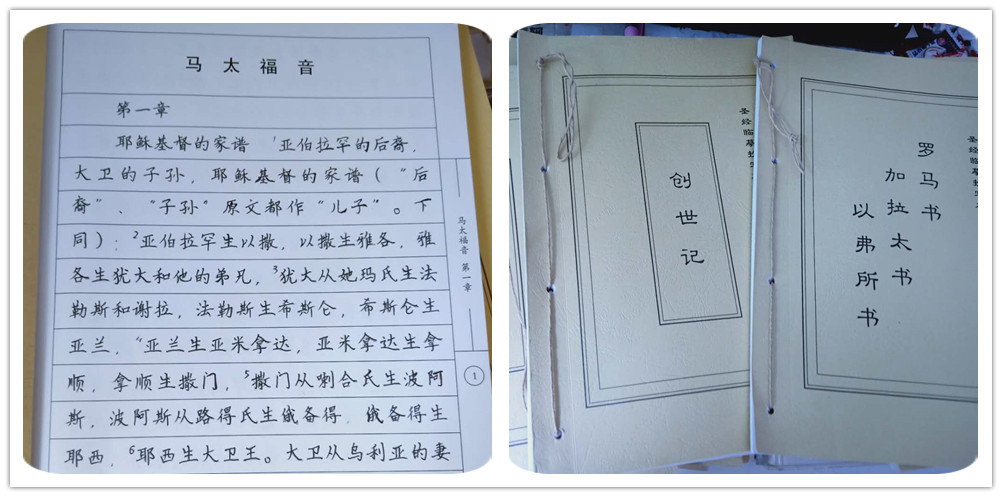 马太福音
第一章
耶稣基督的家谱 1亚伯拉罕的后裔，
大卫的子孙，耶稣基督的家谱（“后
裔”、“子孙”原文都作“儿子”。下
同）：2亚伯拉罕生以撒，以撒生雅各，雅
各生犹大和他的弟兄，3犹大从她玛氏生法
勒斯和谢拉，法勒斯生希斯仑，希斯仑生
亚兰，4亚兰生亚米拿达，亚米拿达生拿
顺，拿顺生撒门，5撒门从喇合氏生波阿
斯，波阿斯从路得氏生俄备得，俄备得生
耶西，6耶西生大卫王。大卫从乌利亚的妻
马太福音 第一章
1
圣经临摹
创世记
圣经临摹
罗马书
加拉太书
以弗所书